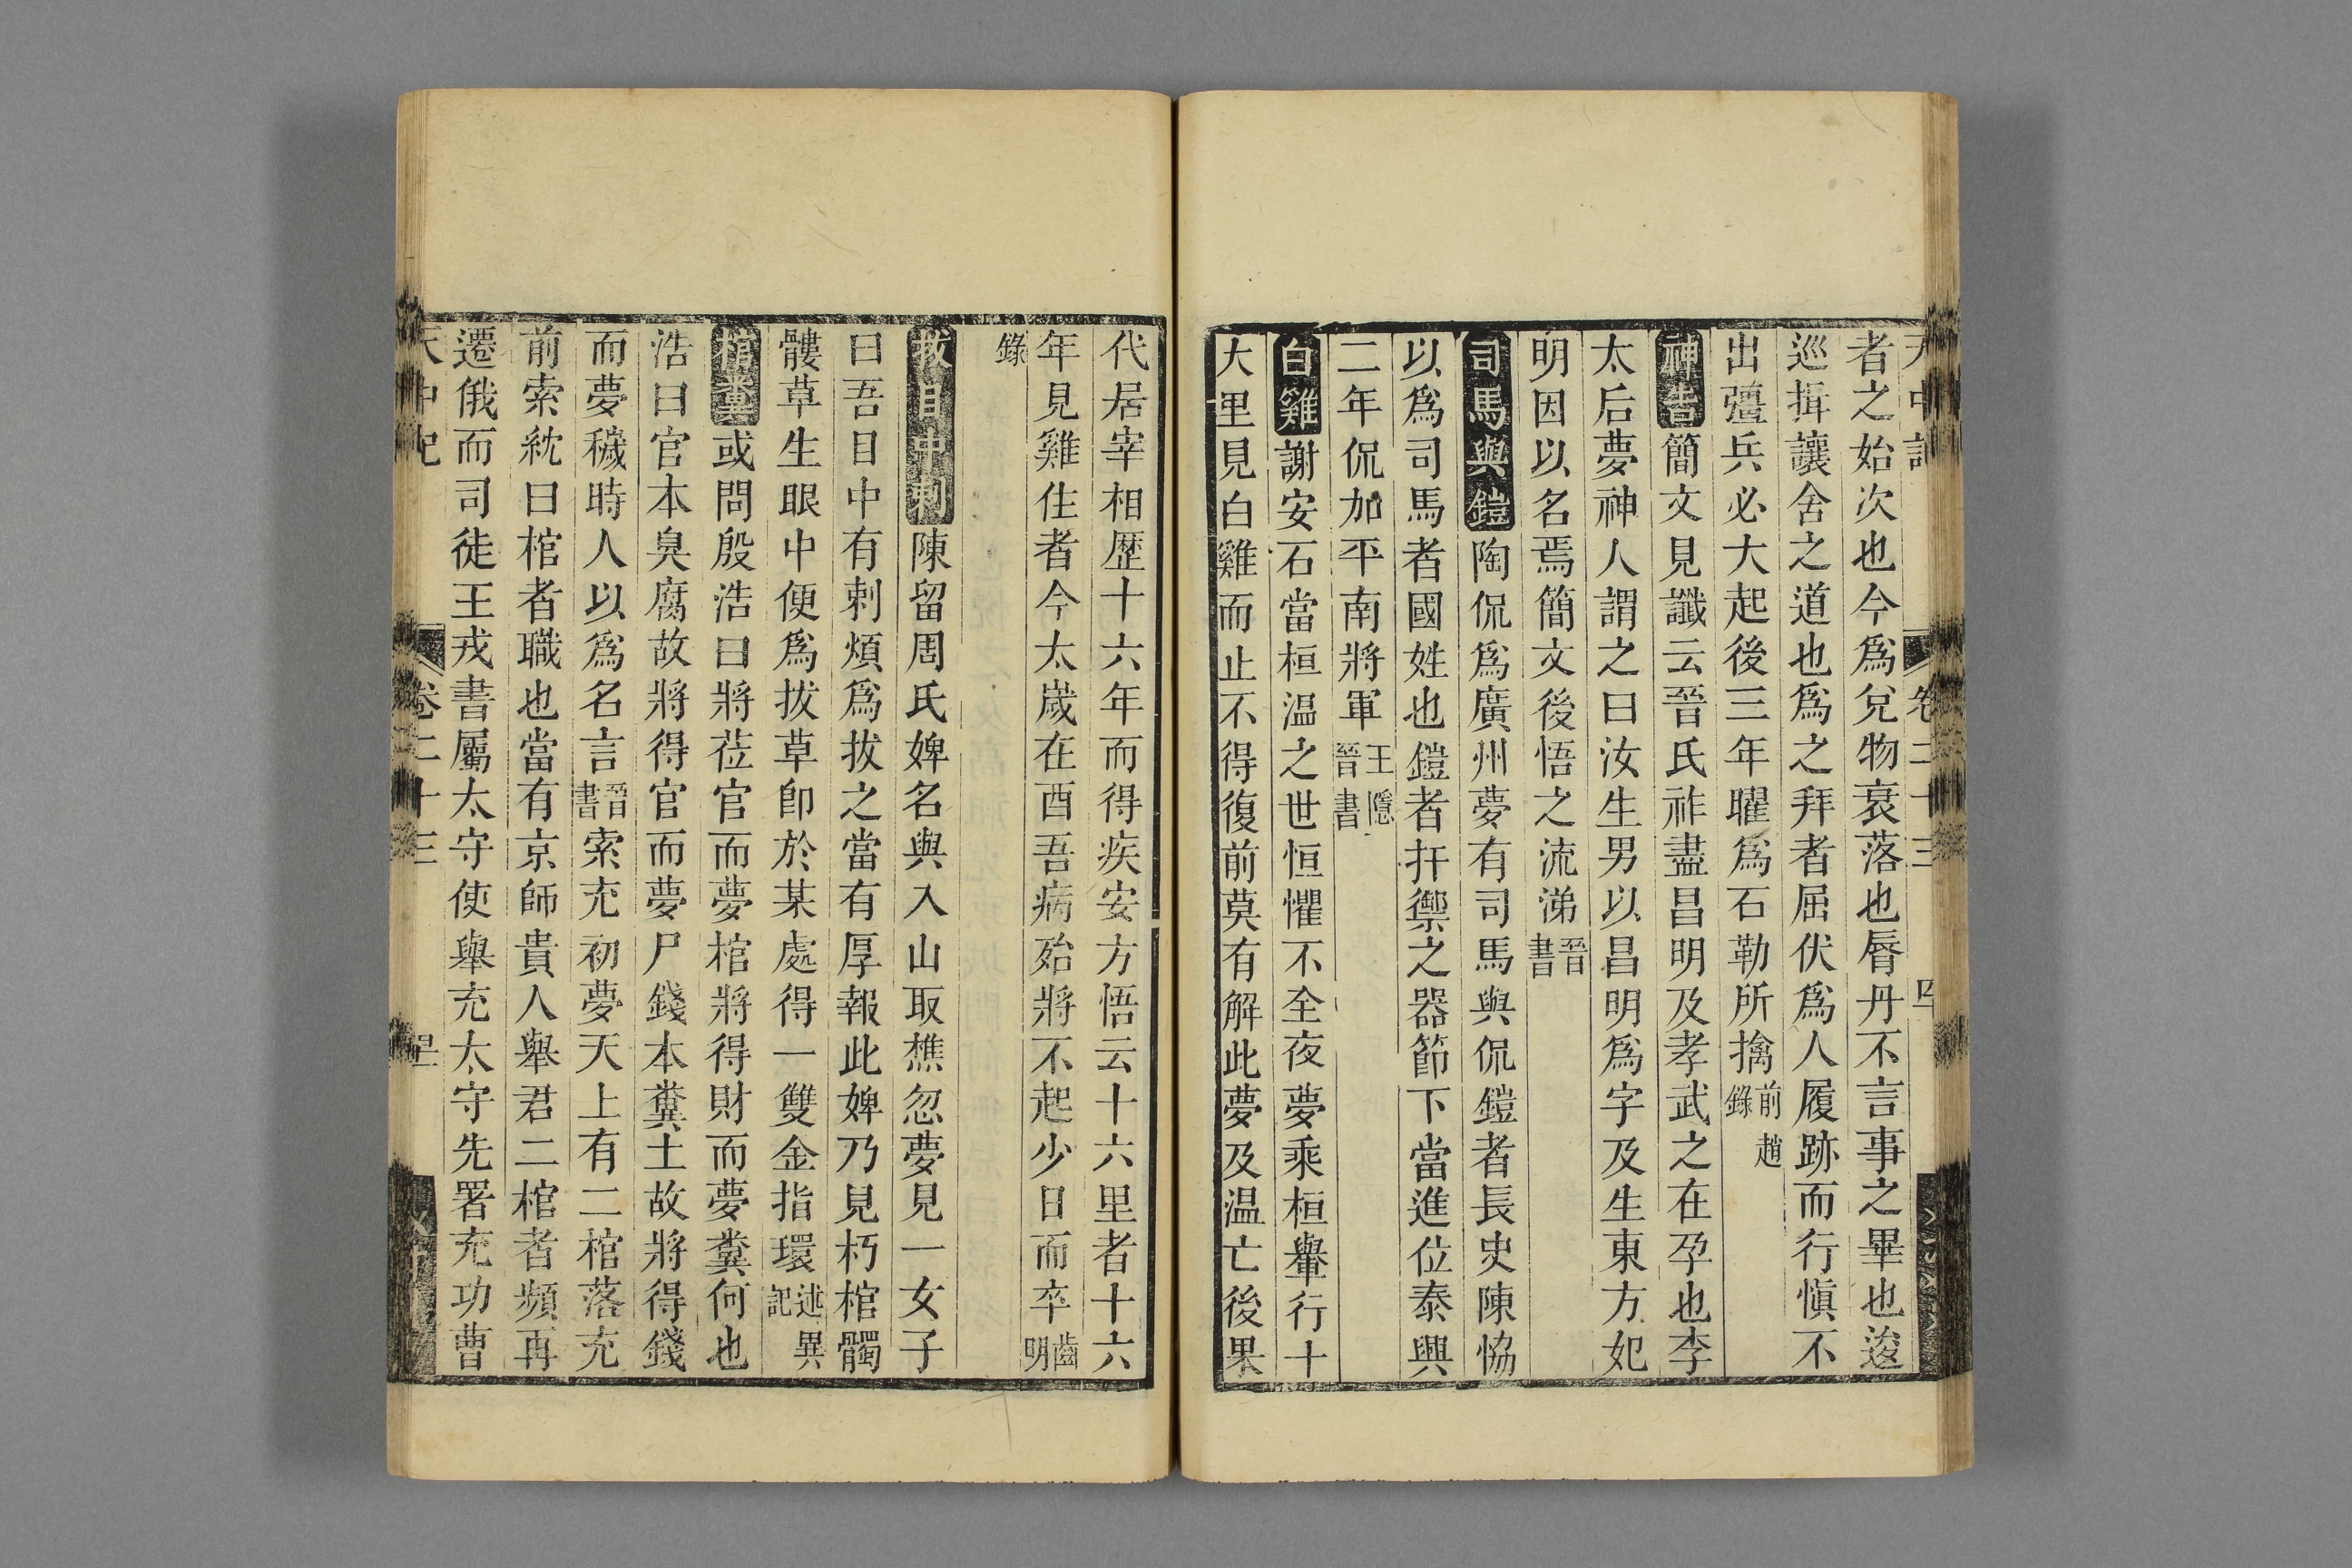 者之始次也今爲兌物衰落也脣丹不言事之畢也逡
巡揖讓舍之道也爲之拜者屈伏爲人履跡而行愼不
出彊兵必大起後三年曜爲石勒所擒前趙錄
神告簡文見讖云晉氏祚盡昌明及孝武之在孕也李
太后夢神人謂之曰汝生男以昌明爲字及生東方妃
明因以名焉簡文後悟之流涕晉書
司馬與鎧陶侃爲廣州夢有司馬與侃鎧者長史陳恊
以爲司馬者國姓也鎧者扞禦之器節下當進位泰興
二年侃加平南將軍王隱晉書
白雞謝安石當桓温之世恒懼不全夜夢乘桓轝行十
大里見白雞而止不得復前莫有解此夢及温亡後果
代居宰相歷十六年而得疾安方悟云十六里者十六
年見雞住者今太歲在酉吾病殆將不起少日而卒齒明
錄
拔目中刺陳留周氏婢名與入山取樵忽夢見一女子
曰吾目中有剌煩爲拔之當有厚報此婢乃見朽棺髑
髏草生眼中便爲拔草卽於某處得一雙金指環述異記
棺糞或問殷浩曰將莅官而夢棺將得財而夢糞何也
浩曰官本臭腐故將得官而夢尸錢本糞土故將得錢
而夢穢時人以爲名言晉書索充初夢天上有二棺落充
前索紞曰棺者職也當有京師貴人舉君二棺者頻再
遷俄而司徒王戎書屬太守使舉充太守先署充功曹
天中記 卷二十三